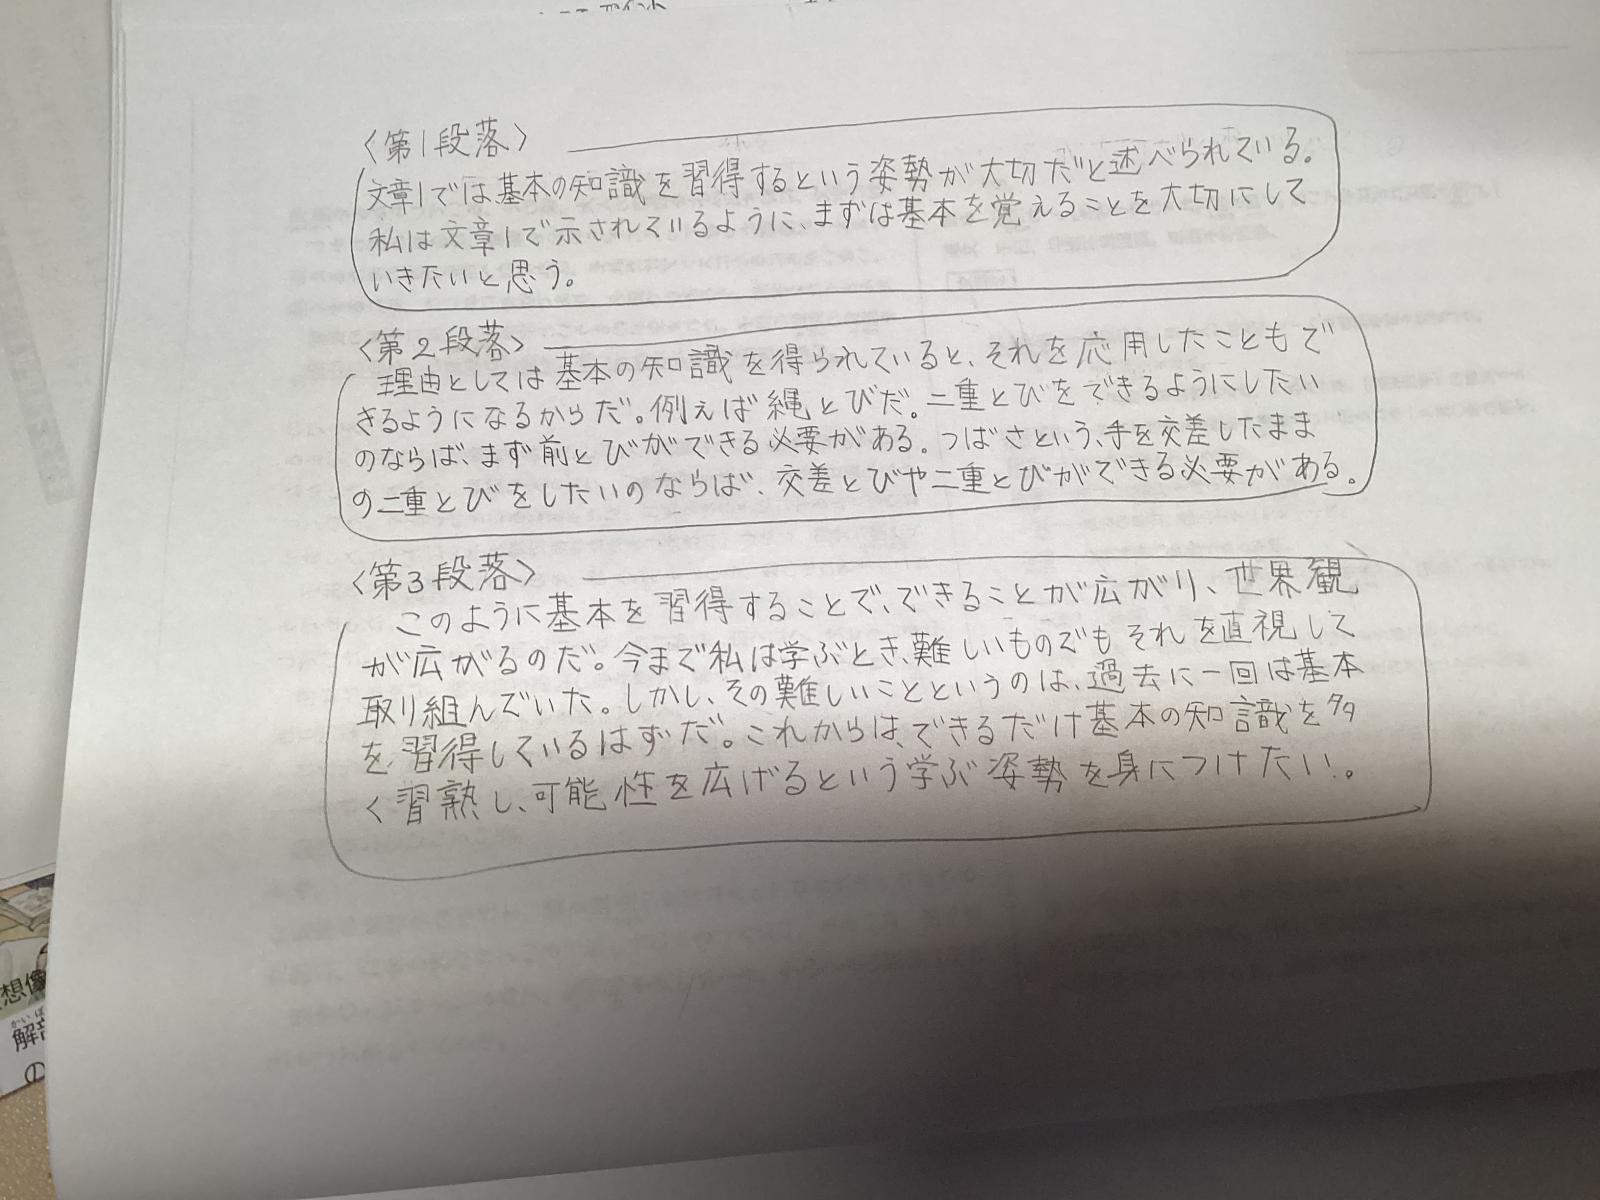 〈第1段落〉
文章1では基本の知識を習得するという姿勢が大切だと述べられている。
私は文章1で示されているように、まずは基本を覚えることを大切にして
いきたいと思う。
〈第2段落〉
理由としては基本の知識を得られていると、それを応用したこともで
きるようになるからだ。例えば縄とびだ。二重とびをできるようにしたい
のならば、まず前とびができる必要がある。つばさという、手を交差したまま
の二重とびをしたいのならば、交差とびや二重とびができる必要がある。
〈第3段落〉
このように基本を習得することで、できることが広がり、世界観
が広がるのだ。今まで私は学ぶとき、難しいものでもそれを直視して
取り組んでいた。しかし、その難しいことというのは、過去に一回は基本
を習得しているはずだ。これからは、できるだけ基本の知識を多
く習熟し、可能性を広げるという学ぶ姿勢を身につけたい。
想像
解
の